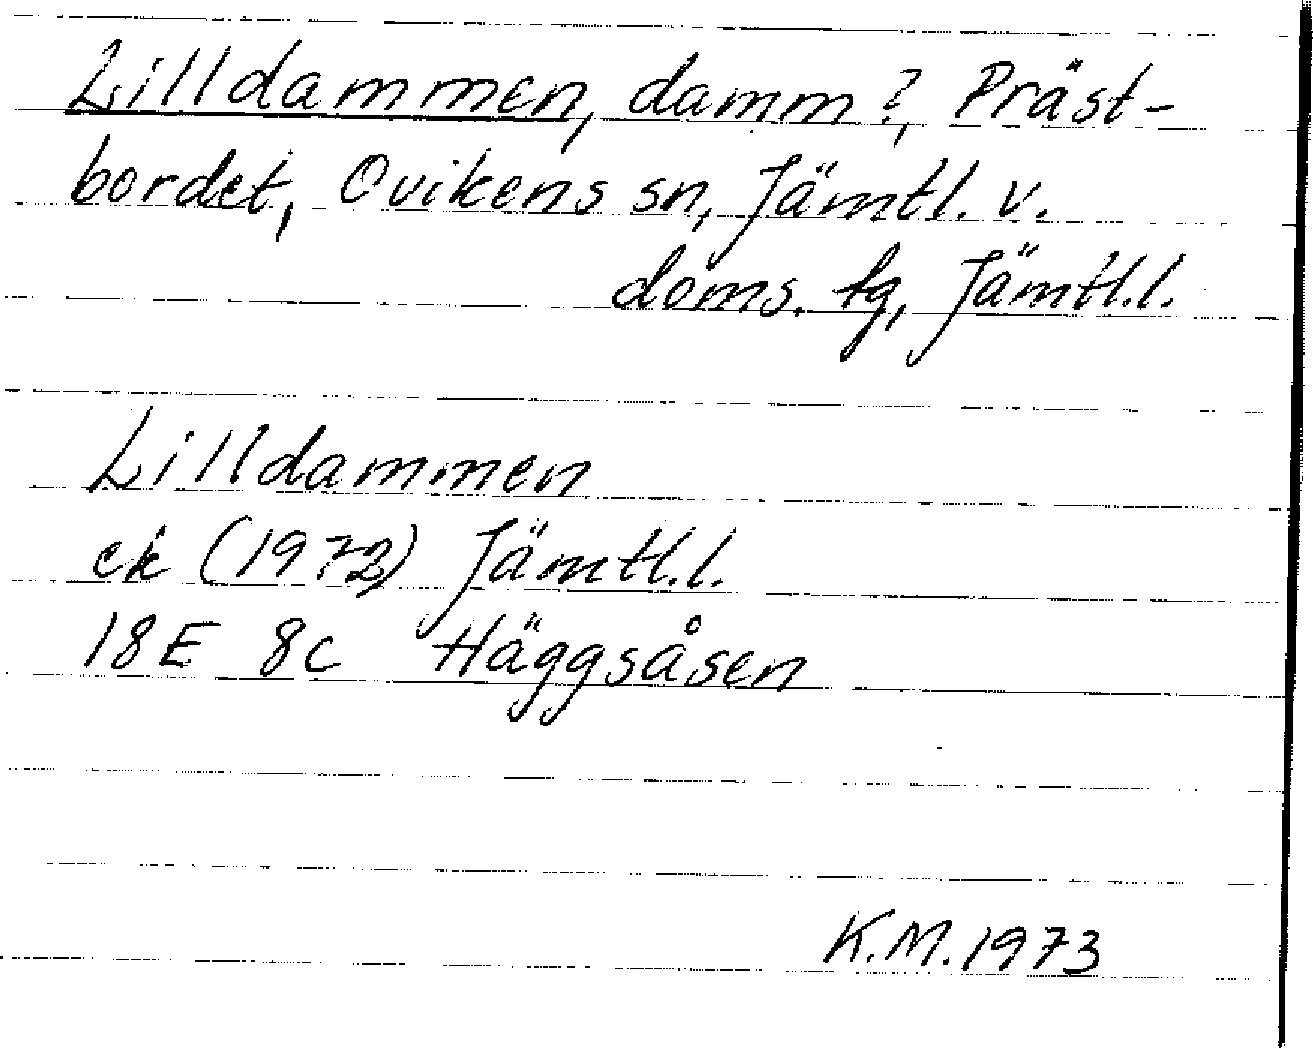 Lilldammen, damm?, Präst-
bordet, Ovikens sn, Jämtl. v.
doms. tg, Jämtl.l.
Lilldammen
ek (1972) Jämtl.l.
18E 8c Häggsåsen
K.M. 1973